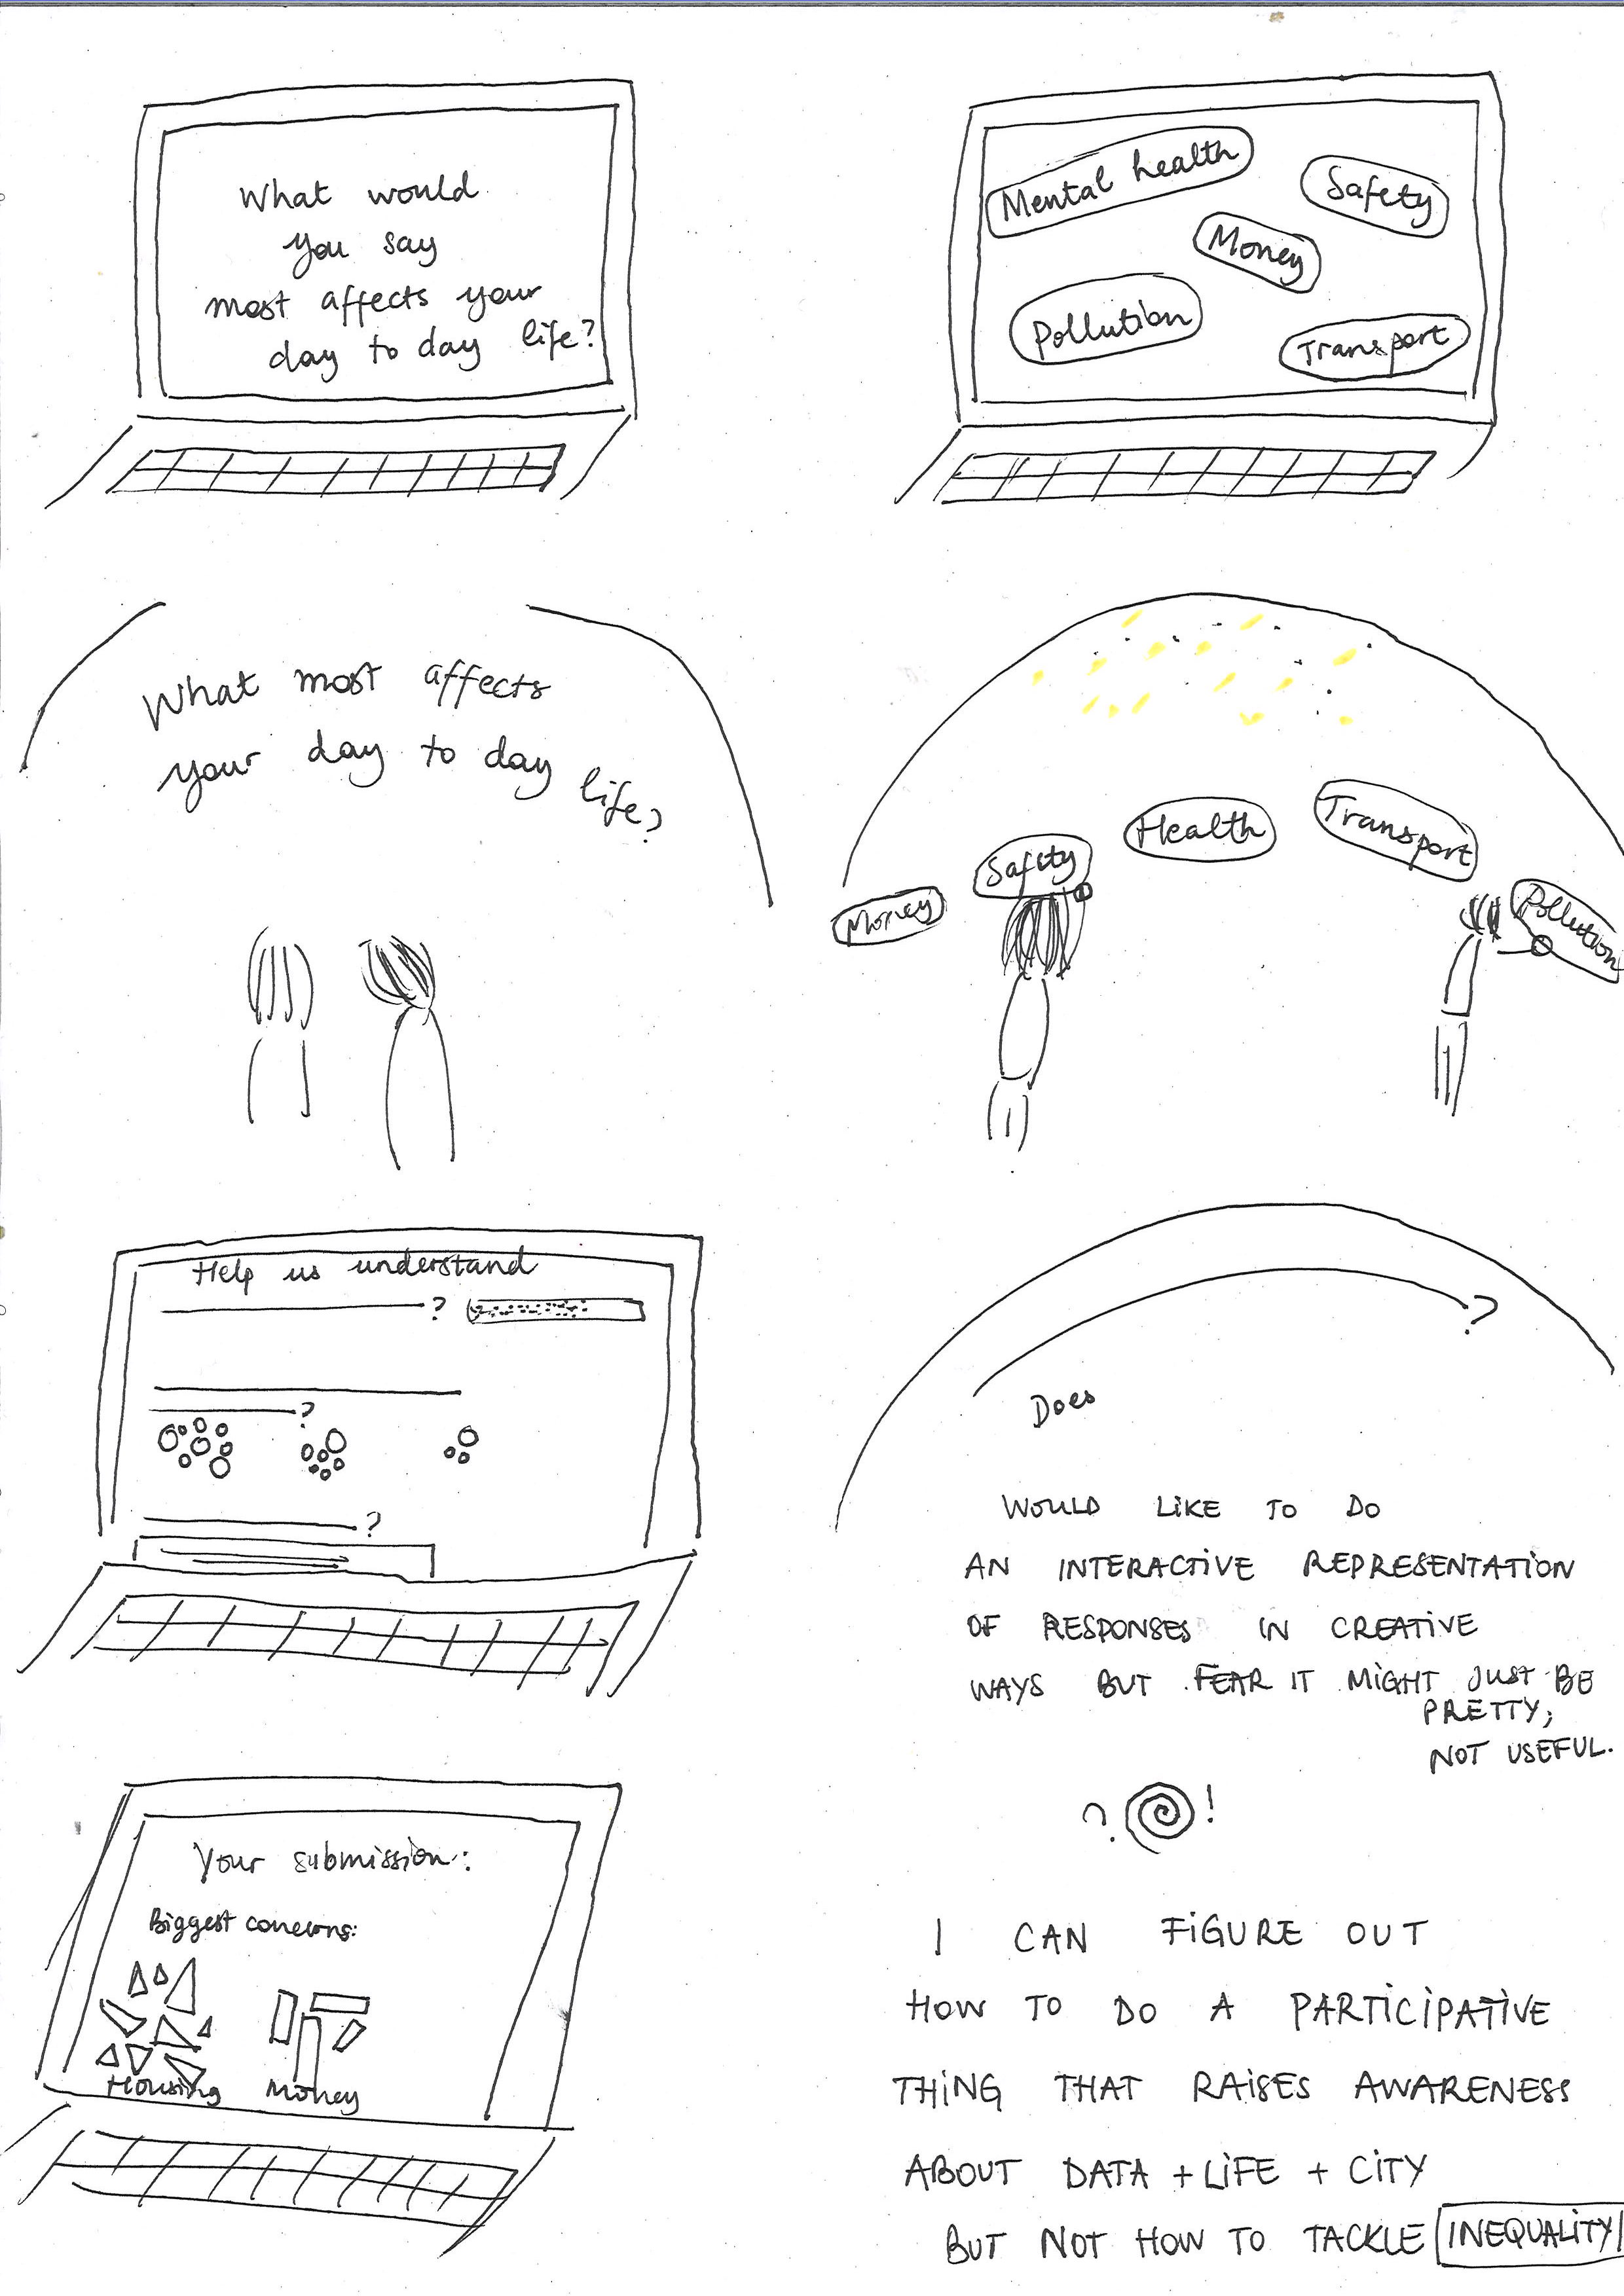 What would
you say
most affects your
day to day life?
Mental health
Safety
Money
Pollution
Transport
What most affects
your day to day life?
Money
Safety
Health
Transport
Pollution
Help us understand
?
?
?
?
Does
WOULD LIKE TO DO
AN INTERACTIVE REPRESENTATION
OF RESPONSES IN CREATIVE
WAYS BUT FEAR IT MIGHT JUST BE
PRETTY;
NOT USEFUL.
? !
Your submission:
Biggest concerns:
Housing Money
I CAN FIGURE OUT
HOW TO DO A PARTICIPATIVE
THING THAT RAISES AWARENESS
ABOUT DATA + LIFE + CITY
BUT NOT HOW TO TACKLE INEQUALITY